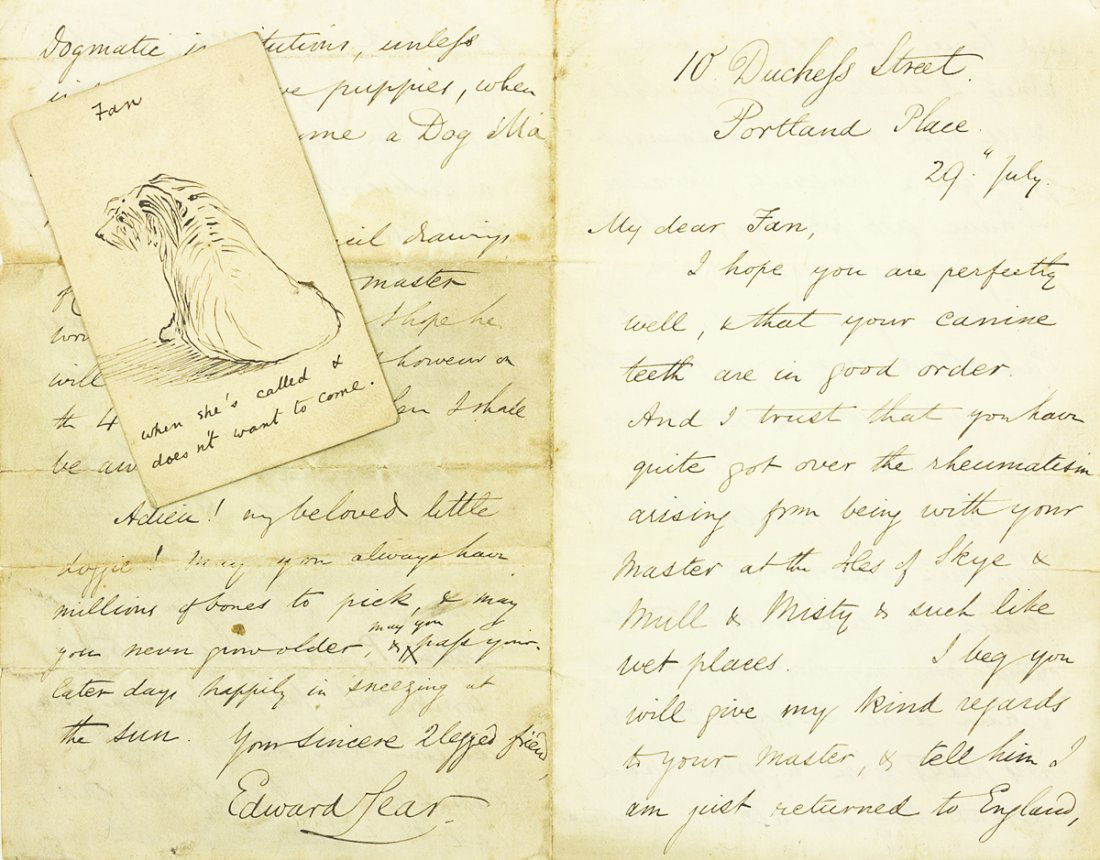 10 Duchess Street.
Portland Place.
29." July.
My dear Fan,
I hope you are perfectly
well, & that your canine
teeth are in good order.
And I trust that you have
quite got over the rheumatism
arising from being with your
Master at the Isles of Skye &
Mull & Misty & such like
wet places. I beg you
will give my kind regards
to your Master, & tell him I
am just returned to England,
Dogmatic institutions, unless
puppies, when
a Dog Ma
drawings
master
I hope he
will however on
th 4 I shall
be
Adieu! my beloved little
Doggie! May you always have
millions of bones to pick, & may
you never grow older, & may you pass your
later days happily in sneezing at
the sun. Your sincere 2legged friend,
Edward Lear.
Fan
when she's called &
does n't want to come.